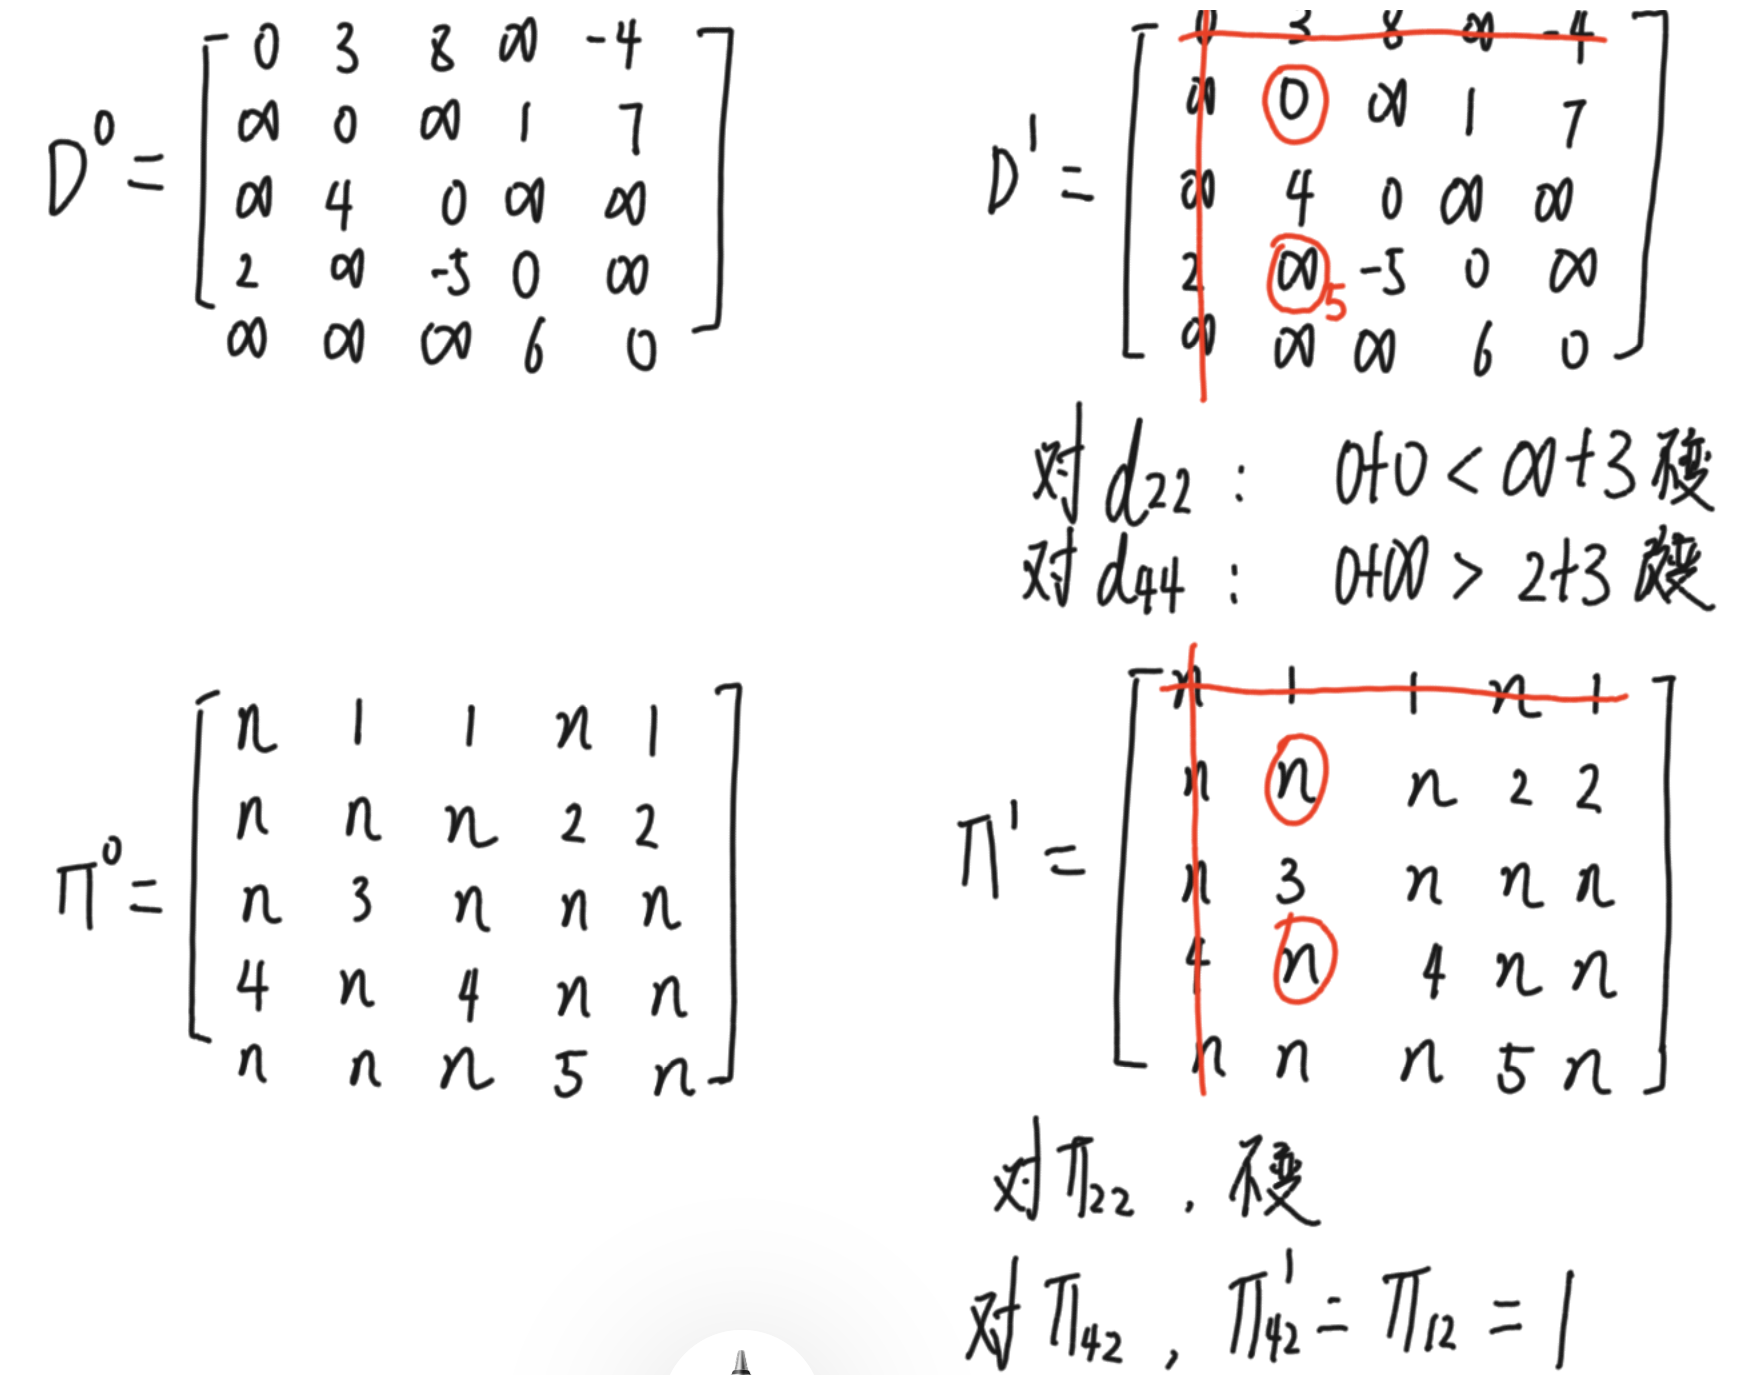 D⁰ =
0 3 8 ∞ -4
∞ 0 ∞ 1 7
∞ 4 0 ∞ ∞
2 ∞ -5 0 ∞
∞ ∞ ∞ 6 0
D¹ =
0 3 8 ∞ -4
∞ 0 ∞ 1 7
∞ 4 0 ∞ ∞
2 ∞ 5 -5 0 ∞
∞ ∞ ∞ 6 0
对 d₂₂ : 0+0 < ∞+3
对 d₄₄ : 0+∞ > 2+3
π⁰ =
n 1 1 n 1
n n n 2 2
n 3 n n n
4 n 4 n n
n n n 5 n
π¹ =
n 1 1 n 1
n n n 2 2
n 3 n n n
4 n 4 n n
n n n 5 n
对 π₂₂ ,
对 π₄₂ , π¹₄₂ = π₁₂ = 1